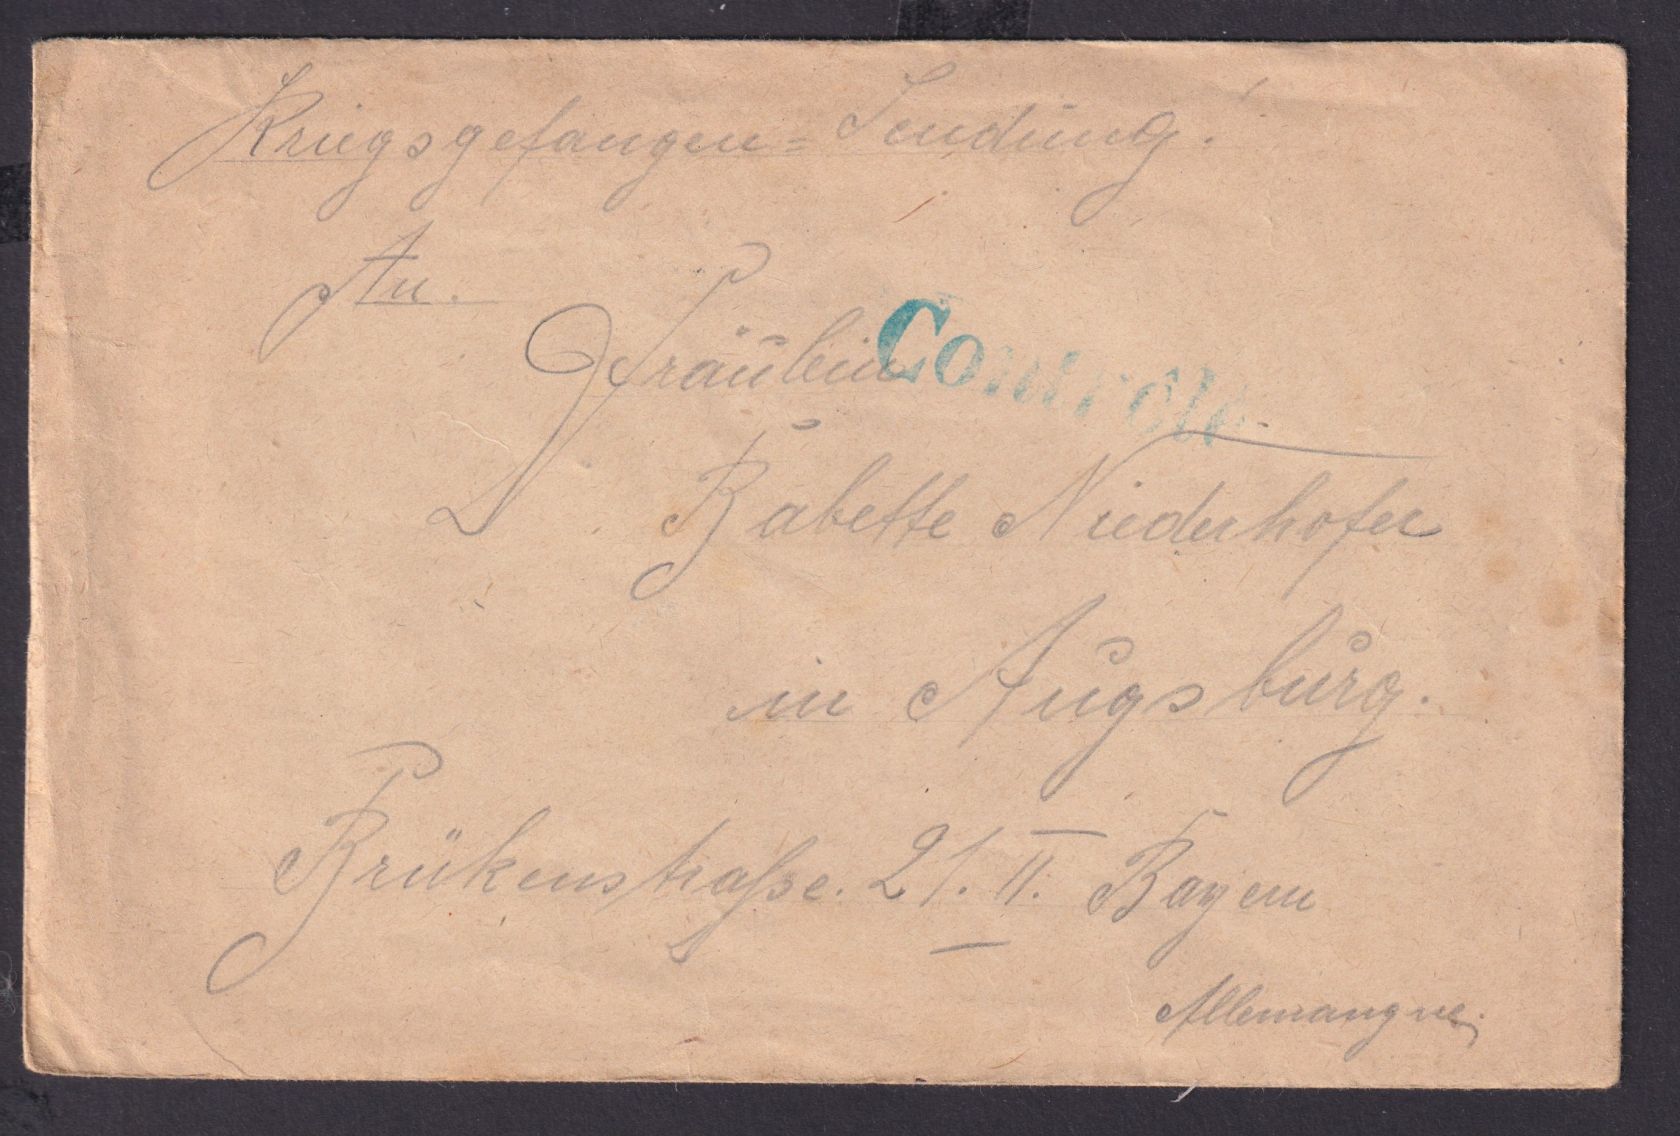 Kriegsgefangen=Sendung!
An.
Fräulein
Controle
Babette Niederhofer
in Augsburg.
Brükenstraße. 21. II. Bayern
Allemangne.